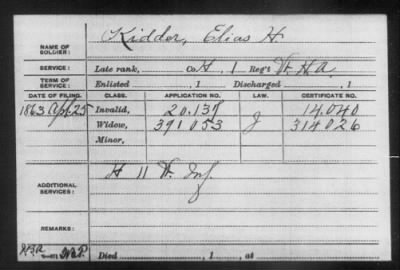 NAME OF SOLDIER: Kidder, Elias H.
SERVICE: Late rank, Co H, 1 Reg't Vt. H.A.
TERM OF SERVICE: Enlisted , 1 Discharged , 1
DATE OF FILING. CLASS. APPLICATION NO. LAW. CERTIFICATE NO.
1863 Apl 25 Invalid, 20.137 14.040
Widow, 391053 J 314026
Minor,
ADDITIONAL SERVICES: H 11 Vt. Inf.
REMARKS:
Died , 1 , at